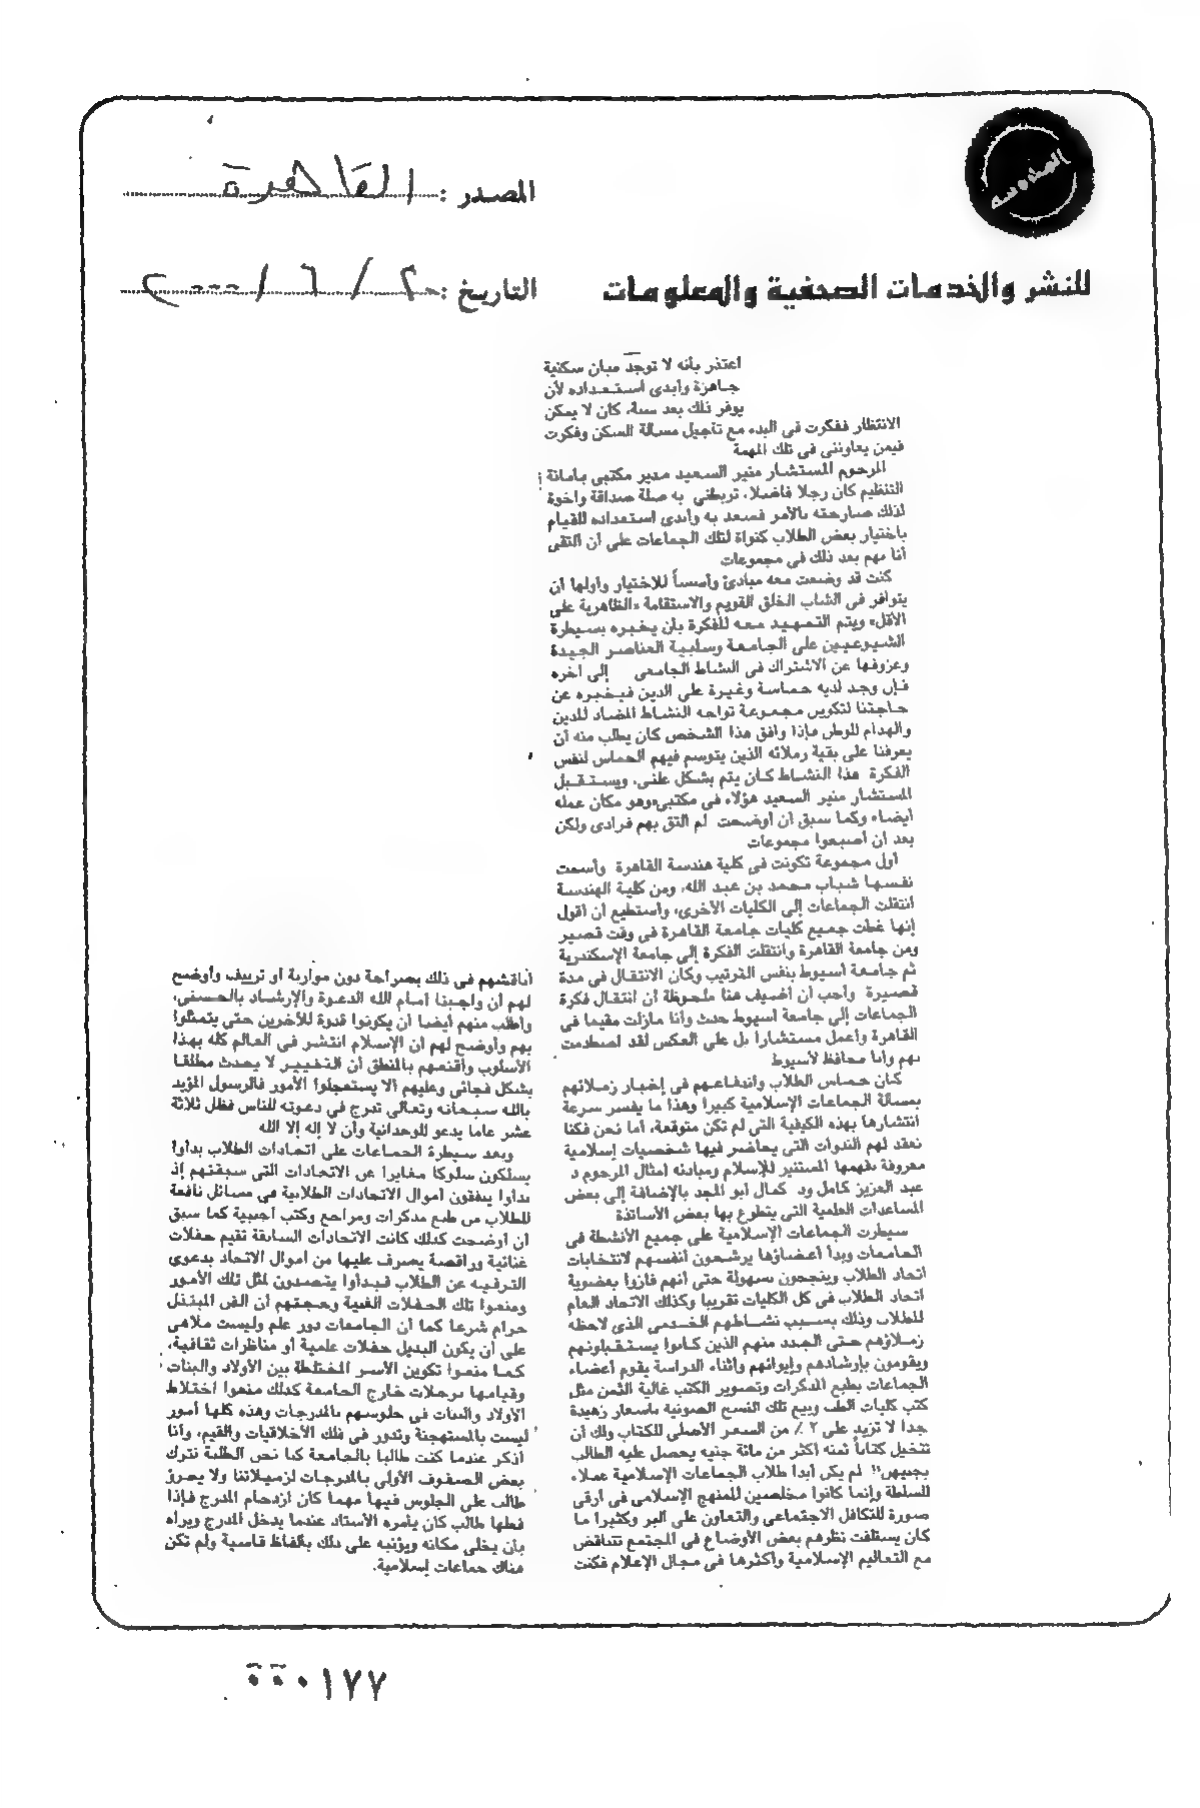 المصدر : القاهرة
للنشر والخدمات الصحفية والمعلومات
التاريخ : ٢٠ / ٦ / ٢٠٠٠
اعتذر بأنه لا توجد مبان سكنية
جاهزة وأبدى استعداده لأن
يوفر ذلك بعد سنة، كان لا يمكن
الانتظار ففكرت فى البدء مع تأجيل مسألة السكن وفكرت
فيمن يعاوننى فى تلك المهمة
المرحوم المستشار منير السعيد مدير مكتبى بأمانة
التنظيم كان رجلا فاضلا، تربطني به صلة صداقة وأخوة
لذلك صارحته بالأمر فسعد به وأبدى استعداده للقيام
باختيار بعض الطلاب كنواة لتلك الجماعات على أن التقى
أنا بهم بعد ذلك فى مجموعات
كنت قد وضعت معه مبادئ وأسساً للاختيار وأولها أن
يتوافر فى الشاب الخلق القويم والاستقامة «الظاهرية على
الأقل» ويتم التمهيد معه للفكرة بأن يخبره بسيطرة
الشيوعيين على الجامعة وسلبية العناصر الجيدة
وعزوفها عن الاشتراك فى النشاط الجامعى إلى آخره
فإن وجد لديه حماسة وغيرة على الدين فيخبره عن
حاجتنا لتكوين مجموعة تواجه النشاط المضاد للدين
والهدام للوطن فإذا وافق هذا الشخص كان يطلب منه أن
يعرفنا على بقية زملائه الذين يتوسم فيهم الحماس لنفس
الفكرة هذا النشاط كان يتم بشكل علنى، ويستقبل
المستشار منير السعيد هؤلاء فى مكتبى «وهو مكان عمله
أيضا» وكما سبق أن أوضحت لم التق بهم فرادى ولكن
بعد أن أصبعوا مجموعات
أول مجموعة تكونت فى كلية هندسة القاهرة وأسمت
نفسها شباب محمد بن عبد الله، ومن كلية الهندسة
انتقلت الجماعات إلى الكليات الأخرى، وأستطيع أن أقول
إنها غطت جميع كليات جامعة القاهرة فى وقت قصير
ومن جامعة القاهرة وانتقلت الفكرة إلى جامعة الإسكندرية
ثم جامعة أسيوط بنفس الترتيب وكان الانتقال فى مدة
قصيرة وأحب أن أضيف هنا ملحوظة أن انتقال فكرة
الجماعات إلى جامعة أسيوط حدث وأنا مازلت مقيما فى
القاهرة وأعمل مستشارا بل على العكس لقد اصطدمت
بهم وأنا محافظ لأسيوط
كان حماس الطلاب واندفاعهم فى إخبار زملائهم
بمسألة الجماعات الإسلامية كبيرا وهذا ما يفسر سرعة
انتشارها بهذه الكيفية التى لم تكن متوقعة، أما نحن فكنا
نعقد لهم الندوات التى يحاضر فيها شخصيات إسلامية
معروفة بفهمها المستنير للإسلام ومبادئه أمثال المرحوم د
عبد العزيز كامل ود كمال أبو المجد بالإضافة إلى بعض
المساعدات العلمية التى يتطوع بها بعض الأساتذة
سيطرت الجماعات الإسلامية على جميع الأنشطة فى
الجامعات وبدأ أعضاؤها يرشحون أنفسهم لانتخابات
اتحاد الطلاب وينجحون بسهولة حتى أنهم فازوا بعضوية
اتحاد الطلاب فى كل الكليات تقريبا وكذلك الاتحاد العام
للطلاب وذلك بسبب نشاطهم الخدمى الذى لاحظه
زملاؤهم حتى الجدد منهم الذين كانوا يستقبلونهم
ويقومون بإرشادهم وإيوائهم وأثناء الدراسة يقوم أعضاء
الجماعات بطبع المذكرات وتصوير الكتب غالية الثمن مثل
كتب كليات الطب وبيع تلك النسخ الصوتية بأسعار زهيدة
جدا لا تزيد على ٢ ٪ من السعر الأصلى للكتاب ولك أن
تتخيل كتاباً ثمنه أكثر من مائة جنيه يحصل عليه الطالب
بجنيهين" لم يكن أبدا طلاب الجماعات الإسلامية عملاء
للسلطة وإنما كانوا مخلصين للمنهج الإسلامى فى أرقى
صورة للتكافل الاجتماعى والتعاون على البر وكثيرا ما
كان يستلفت نظرهم بعض الأوضاع فى المجتمع تتناقض
مع التعاليم الإسلامية وأكثرها فى مجال الإعلام فكنت
أناقشهم فى ذلك بصراحة دون مواربة أو تزييف وأوضح
لهم أن واجبنا أمام الله الدعوة والإرشاد بالحسنى،
وأطلب منهم أيضا أن يكونوا قدوة للآخرين حتى يتمثلوا
بهم وأوضح لهم أن الإسلام انتشر فى العالم كله بهذا
الأسلوب وأقنعهم بالمنطق أن التغيير لا يحدث مطلقا
بشكل فجائى وعليهم ألا يستعجلوا الأمور فالرسول المؤيد
بالله سبحانه وتعالى تدرج فى دعوته للناس فظل ثلاثة
عشر عاما يدعو للوحدانية وأن لا إله إلا الله
وبعد سيطرة الجماعات على اتحادات الطلاب بدأوا
يسلكون سلوكا مغايرا عن الاتحادات التى سبقتهم إذ
بدأوا ينفقون أموال الاتحادات الطلابية فى مسائل نافعة
للطلاب من طبع مذكرات ومراجع وكتب أجنبية كما سبق
أن أوضحت كذلك كانت الاتحادات السابقة تقيم حفلات
غنائية وراقصة يصرف عليها من أموال الاتحاد بدعوى
الترفيه عن الطلاب فبدأوا يتصدون لمثل تلك الأمور
ومنعوا تلك الحفلات الفنية وحجتهم أن الفن المبتذل
حرام شرعا كما أن الجامعات دور علم وليست ملاهى
على أن يكون البديل حفلات علمية أو مناظرات ثقافية،
كما منعوا تكوين الأسر المختلطة بين الأولاد والبنات
وقيامها برحلات خارج الجامعة كذلك منعوا اختلاط
الأولاد والبنات فى جلوسهم بالمدرجات وهذه كلها أمور
ليست بالمستهجنة وتدور فى فلك الأخلاقيات والقيم، وأنا
أذكر عندما كنت طالبا بالجامعة كنا نحن الطلبة نترك
بعض الصفوف الأولى بالمدرجات لزميلاتنا ولا يجرؤ
طالب على الجلوس فيها مهما كان ازدحام المدرج فإذا
فعلها طالب كان يأمره الأستاذ عندما يدخل المدرج ويراه
بأن يخلى مكانه ويؤنبه على ذلك بألفاظ قاسية ولم تكن
هناك جماعات إسلامية.
٠١٧٧